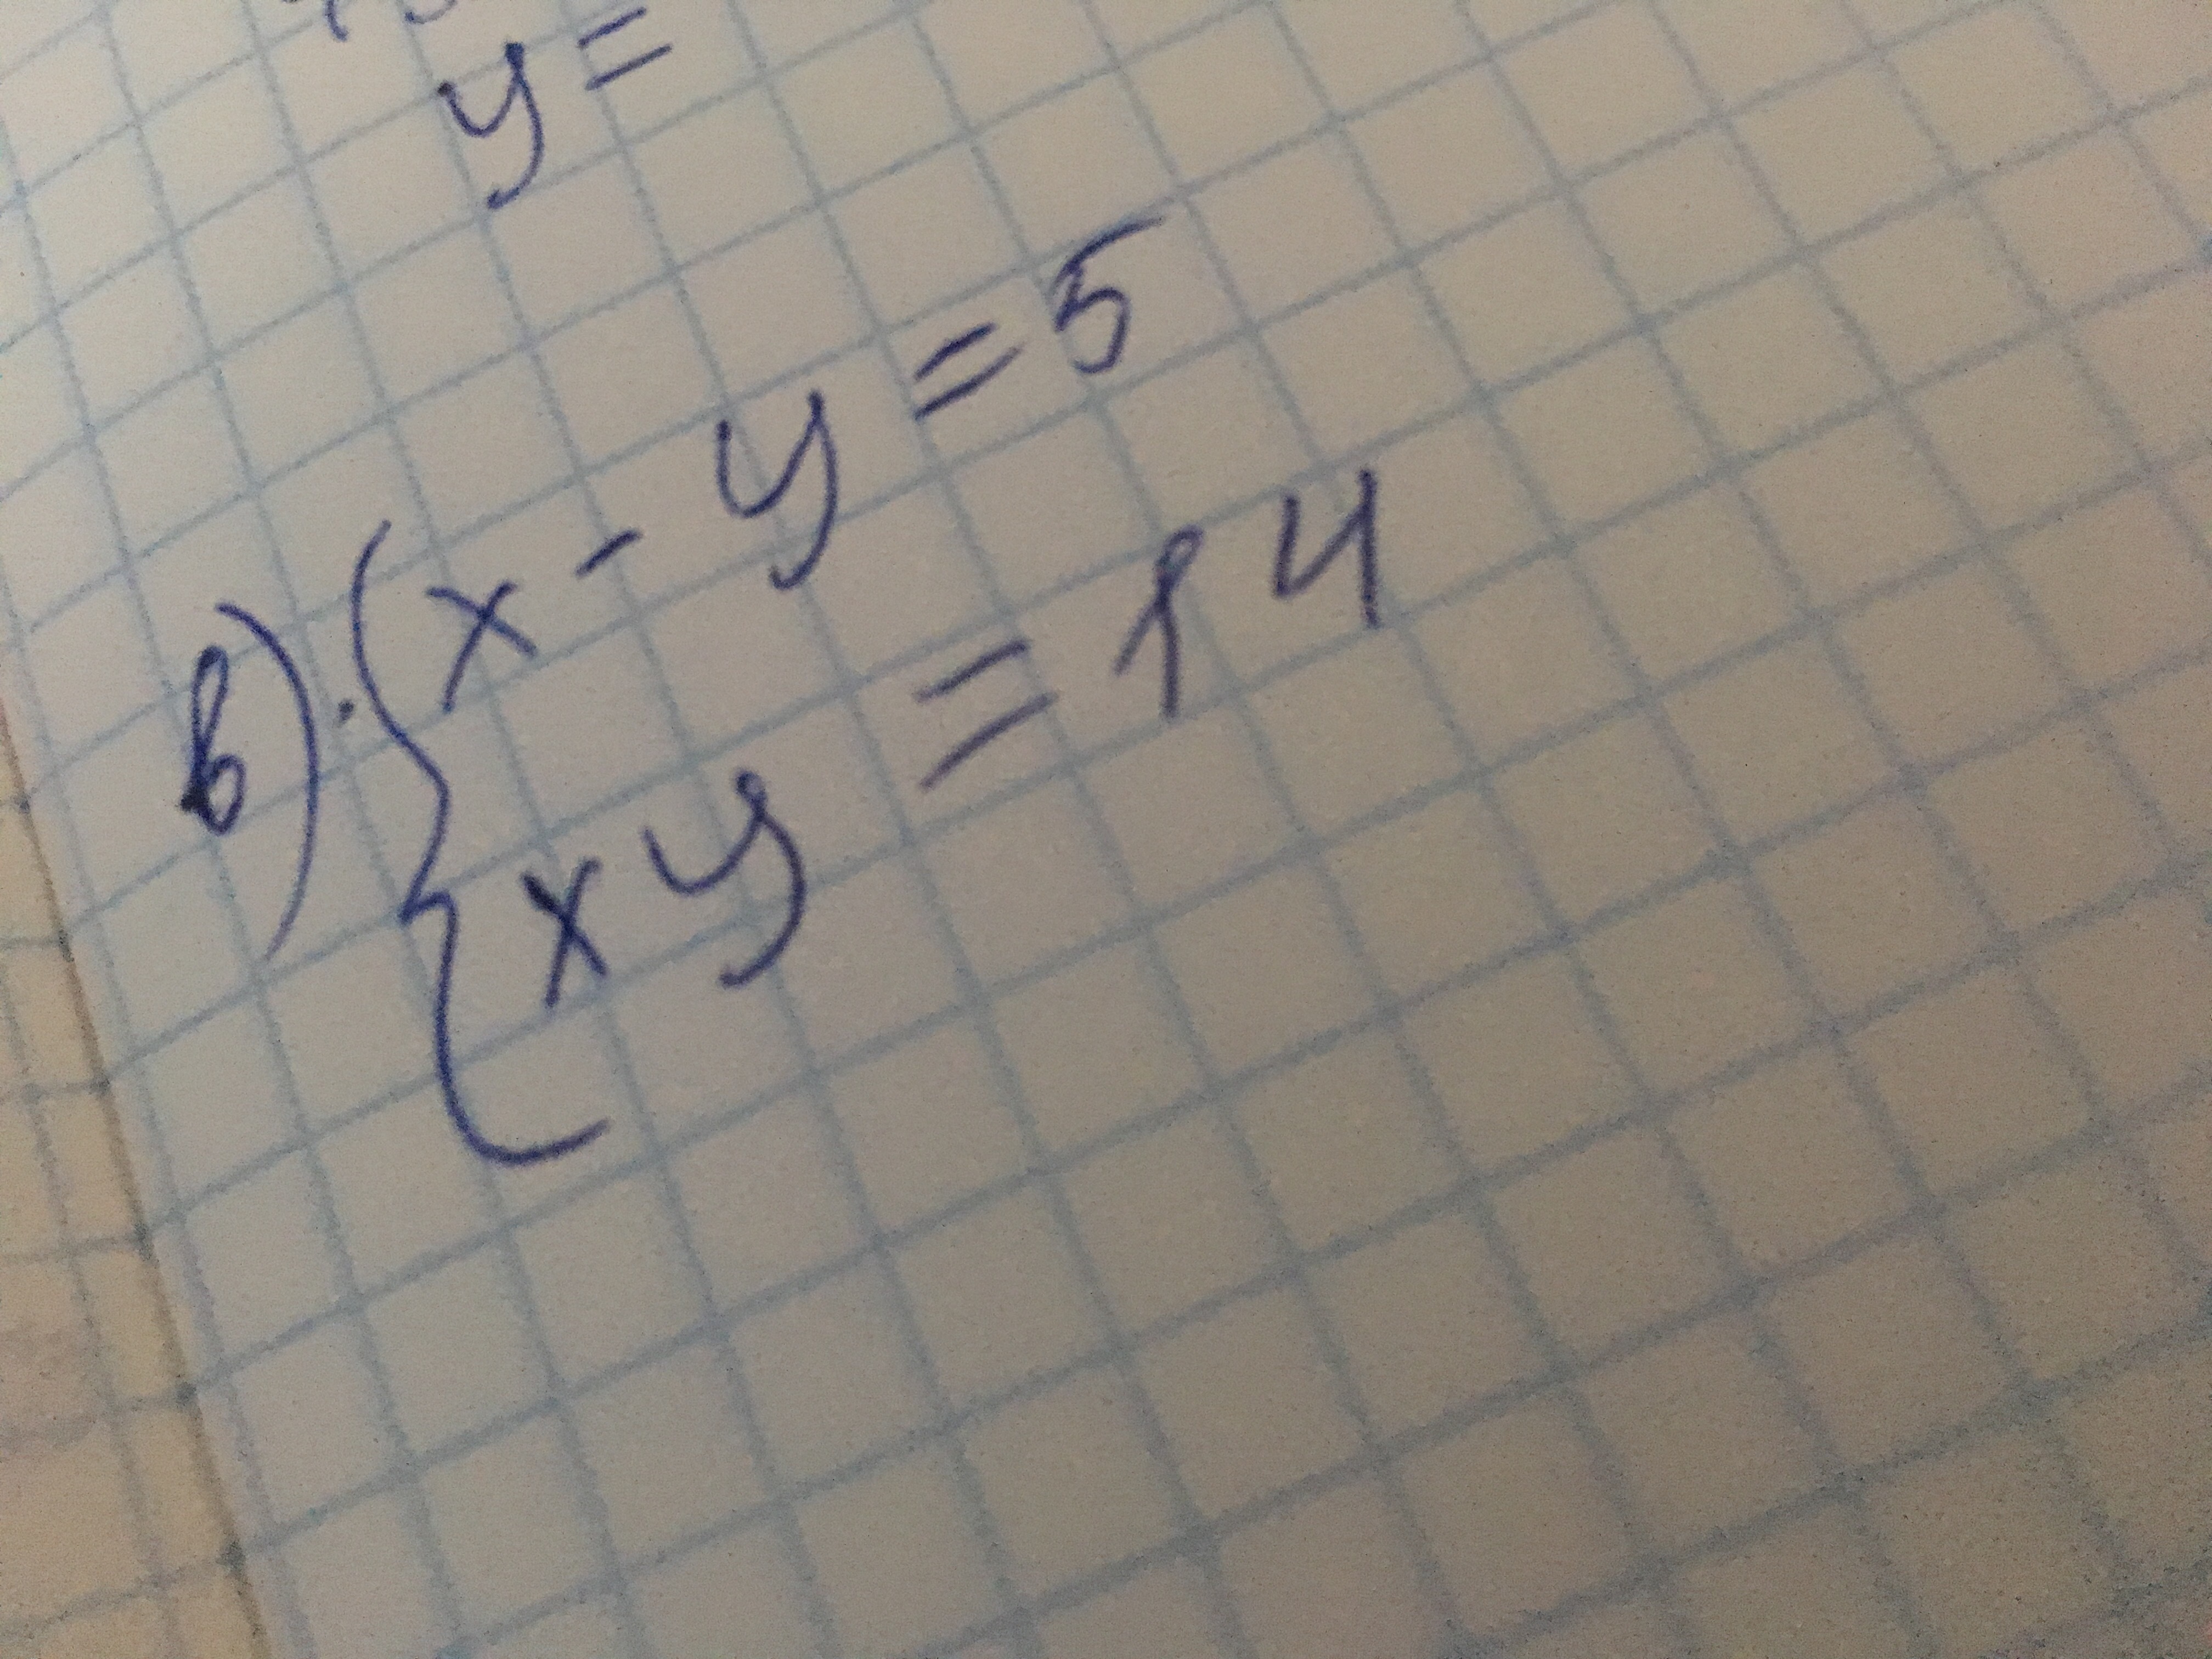 y =
в) { x - y = 5
xy = 14